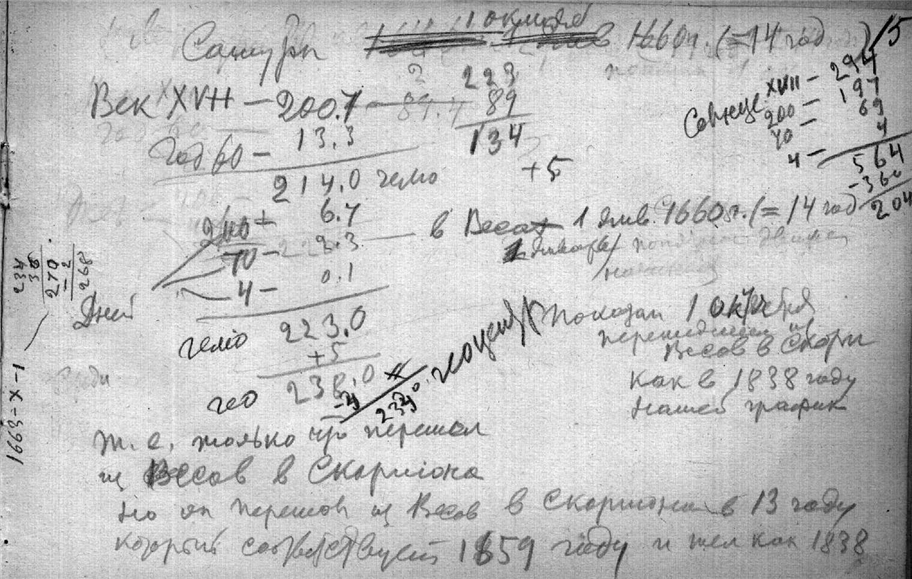 1 октября
Сатурн в 1660 г. (=14 год) 15
Век XVII — 200.7 89.4
223
89
134
+5
год 60 — 13.3
214.0 гелио
Солнце XVII — 294
200 — 197
70 — 69
4 — 4
564
-360
204
200 — 6.7 в Весах 1 янв. 1660 г. (= 14 год
70 — 2.3 1 января
4 — 0.1
Дней
234
36
270
-2
268
1663-X-1
гелио 223.0
+5
гео 238.0
-4
геоцентр
Показан 1 октября
перешедшим из
Весов в Скорп
как в 1838 году
нашей график
т.е. только что перешел
из Весов в Скорпиона
Но он перешел из Весов в Скорпиона в 13 году
который соответствует 1659 году и шел как 1838